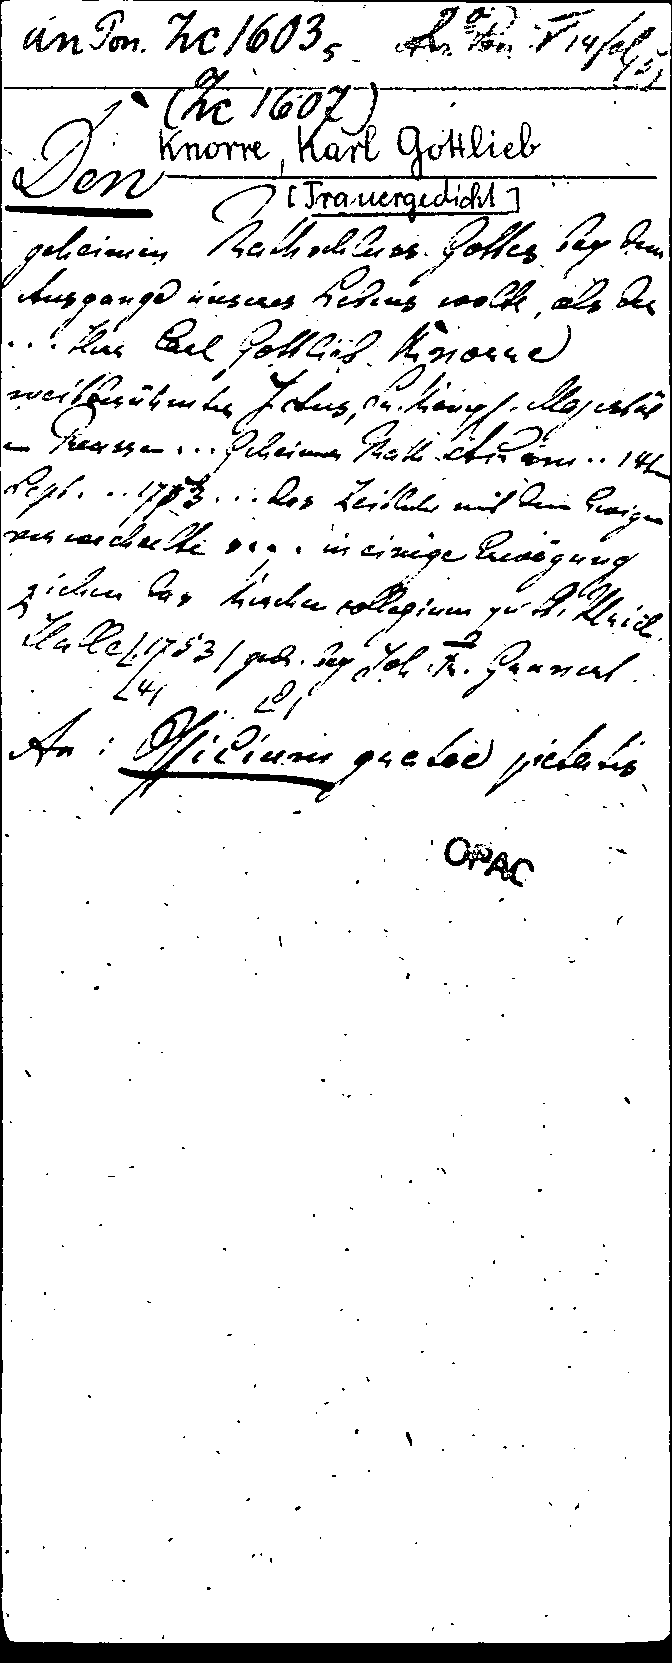 an Pon. Zc 1603,5
(Zc 1607)
Knorre, Karl Gottlieb
Den
[Trauergedicht]
geheimen Rathschluss Gottes bey dem
Ausgange unseres Lebens wolte, als der
... Herr Carl Gottlieb Knorre
weitberühmter Jctus, Sr. Königl. Majestät
in Preussen ... Geheimer Rath ... 14ten
Sept. ... 1753 ... das Zeitliche mit dem Ewigen
verwechselte .... in einige Erwägung
ziehen das Kirchencollegium zu St. Ulrich.
Halle [1753] gedr. bey Joh. Fr. Grunert
An: Officium gratae pietatis
OPAC